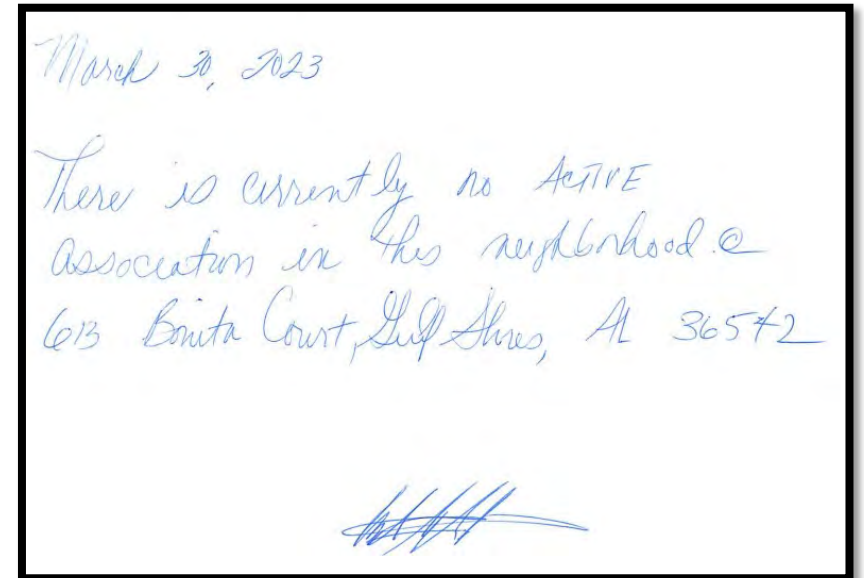 March 30, 2023
There is currently no ACTIVE
association in this neighborhood @
613 Bonita Court, Gulf Shores, AL 36542